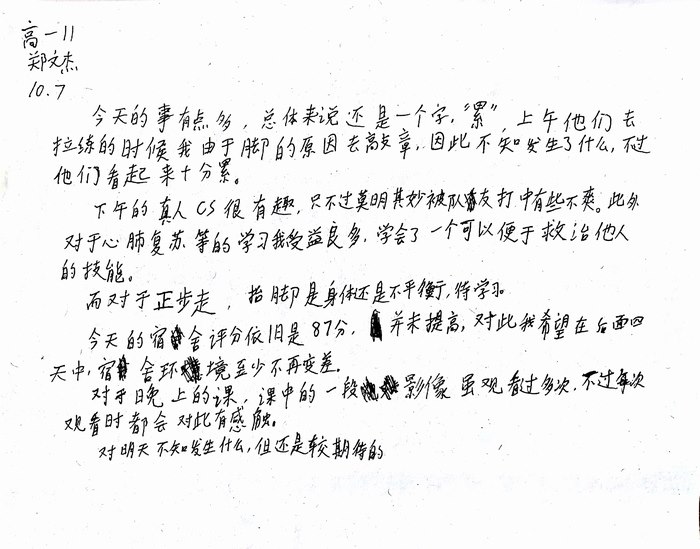 高一11
郑文杰
10.7
今天的事有点多，总体来说还是一个字，“累”，上午他们去
拉练的时候我由于脚的原因去敲章，因此不知发生了什么，不过
他们看起来十分累。
下午的真人CS很有趣，只不过莫明其妙被队友打中有些不爽。此外
对于心肺复苏等的学习我受益良多，学会了一个可以便于救治他人
的技能。
而对于正步走，抬脚是身体还是不平衡，待学习。
今天的宿舍评分依旧是87分，并未提高，对此我希望在后面四
天中，宿舍环境至少不再变差。
对于晚上的课，课中的一段影像虽观看过多次，不过每次
观看时都会对此有感触。
对明天不知发生什么，但还是较期待的